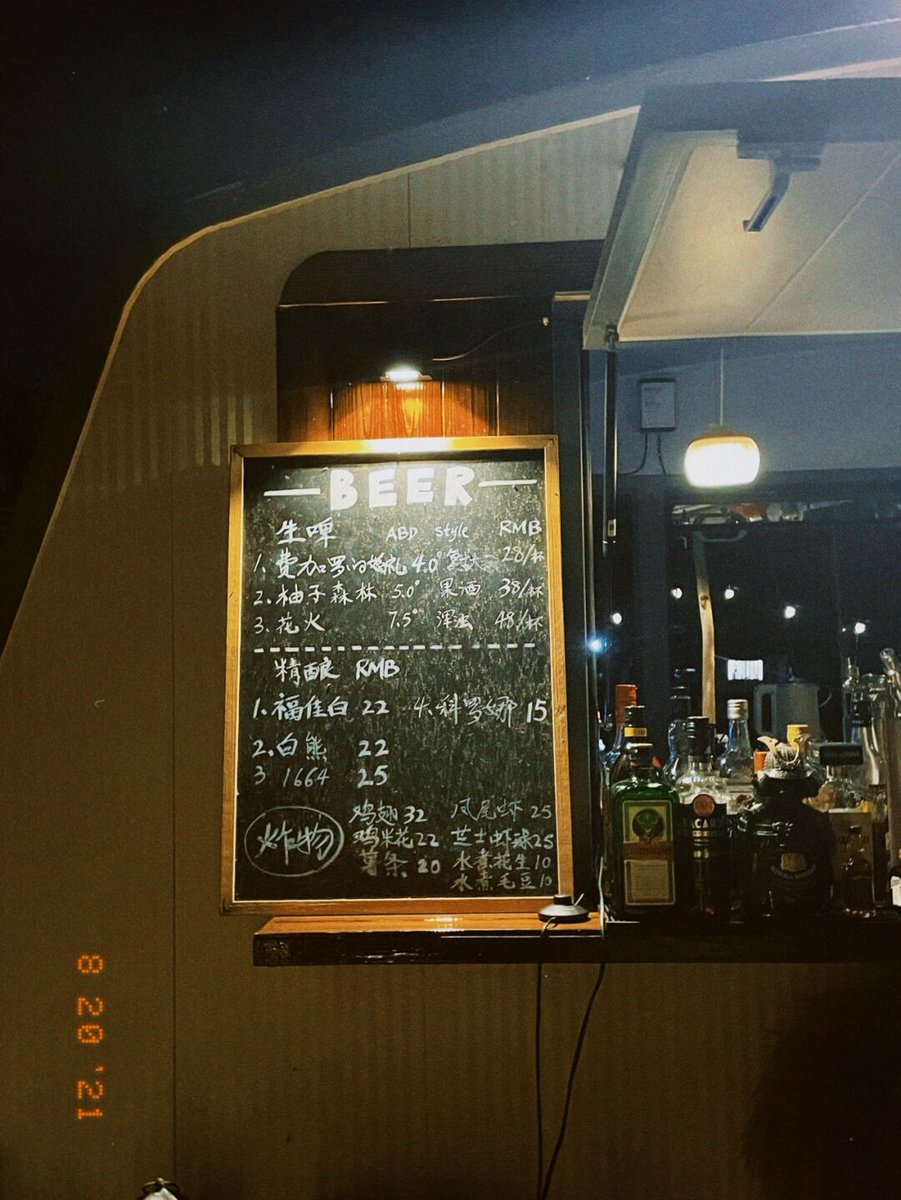 BEER
生啤 ABD style RMB
1. 费加罗的婚礼 4.0° 28/杯
2. 柚子森林 5.0° 果酒 38/杯
3. 花火 7.5° 浑浊 48/杯
精酿 RMB
1. 福佳白 22 4. 科罗娜 15
2. 白熊 22
3 1664 25
炸物
鸡翅 32 凤尾虾 25
鸡米花 22 芝士虾球 25
薯条 20 水煮花生 10
水煮毛豆 10
8 20 '21